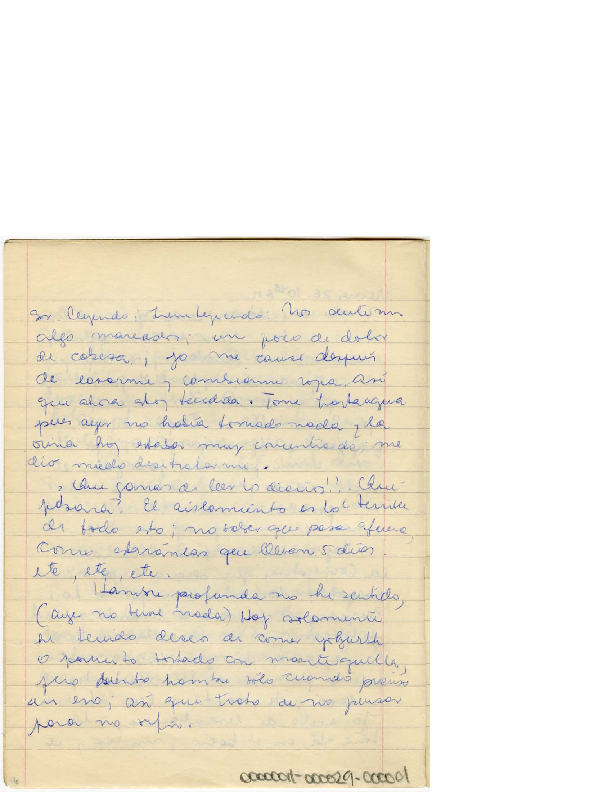 leyendo, tejiendo. Nos sentimos
algo mareados; un poco de dolor
de cabeza, yo me cansé después
de lavarme y cambiarme ropa, así
que ahora estoy tendida. Tomé bastante agua
pues ayer no había tomado nada y la
orina hoy estaba muy concentrada; me
dió miedo deshidratarme.
Qué ganas de leer los diarios!! Qué
pasará? El aislamiento es lo terrible
de todo esto; no saber que pasa afuera,
como estarán las que llevan 5 días
etc, etc, etc.
Hambre profunda no he sentido,
(ayer no tuve nada) Hoy solamente
he tenido deseo de comer yoghurth
o pancito tostado con mantequilla,
pero siento hambre solo cuando pienso
en eso; así que trato de no pensar
para no sufrir.
000001-000029-000001